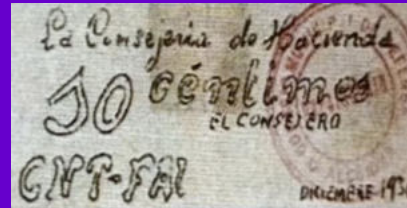 La Consejeria de Hacienda
50 céntimos
EL CONSEJERO
CNT-FAI
DICIEMBRE 193